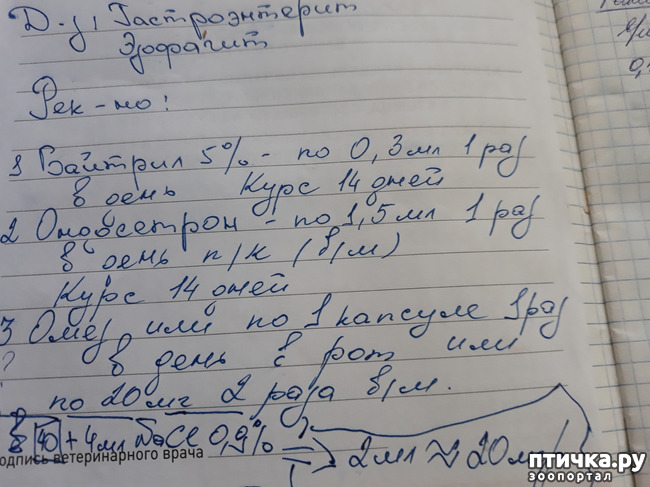 Д-з: Гастроэнтерит
Эзофагит
Рек-но:
1 Байтрил 5% - по 0,3мл 1 раз
в день Курс 14 дней
2 Ондасетрон - по 1,5мл 1 раз
в день п/к (в/м)
Курс 14 дней
3 Омез или по 1 капсуле 1раз
? в день в рот или
по 20мг 2 раза в/м.
в 40 + 4мл NaCl 0,9%
2мл ≈ 20мг
одпись ветеринарного врача
птичка.ру
зоопортал